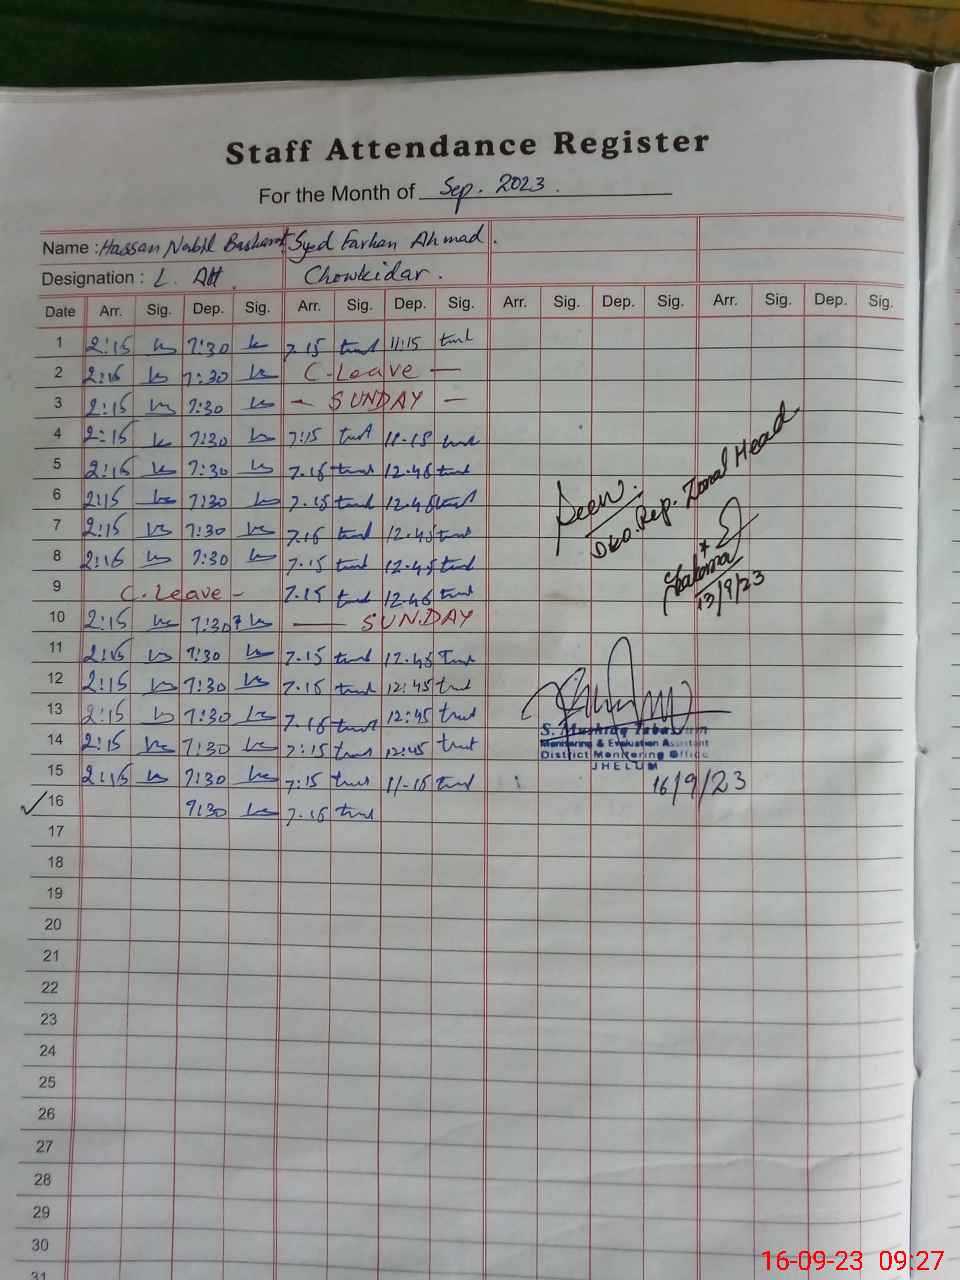 Staff Attendance Register
For the Month of Sep. 2023.
Name : Hassan Nabil Basharat Syed Farhan Ahmad.
Designation : L. Att. Chowkidar.
Date Arr. Sig. Dep. Sig. Arr. Sig. Dep. Sig. Arr. Sig. Dep. Sig. Arr. Sig. Dep. Sig.
1 2:15 7:30 7.15 11:15
2 2:15 7:30 C.Leave —
3 2:15 7:30 — SUNDAY —
4 2:15 7:30 7:15 11-15
5 2:15 7:30 7.15 12.45
6 2:15 7:30 7.15 12.45
7 2:15 7:30 7.15 12.45
8 2:15 7:30 7.15 12.45
9 C. Leave - 7.15 12.45
10 2:15 7:30 — SUNDAY
11 2:15 7:30 7.15 12.45
12 2:15 7:30 7.15 12:45
13 2:15 7:30 7.15 12:45
14 2:15 7:30 7:15 12:45
15 2:15 7:30 7:15 11-15
16 9:30 7.15
17
18
19
20
21
22
23
24
25
26
27
28
29
30
31
Seen.
Rep. Zonal Head
13/9/23
S. Mushtaq Tabassum
Monitoring & Evaluation Assistant
District Monitoring Office
JHELUM
16/9/23
16-09-23 09:27